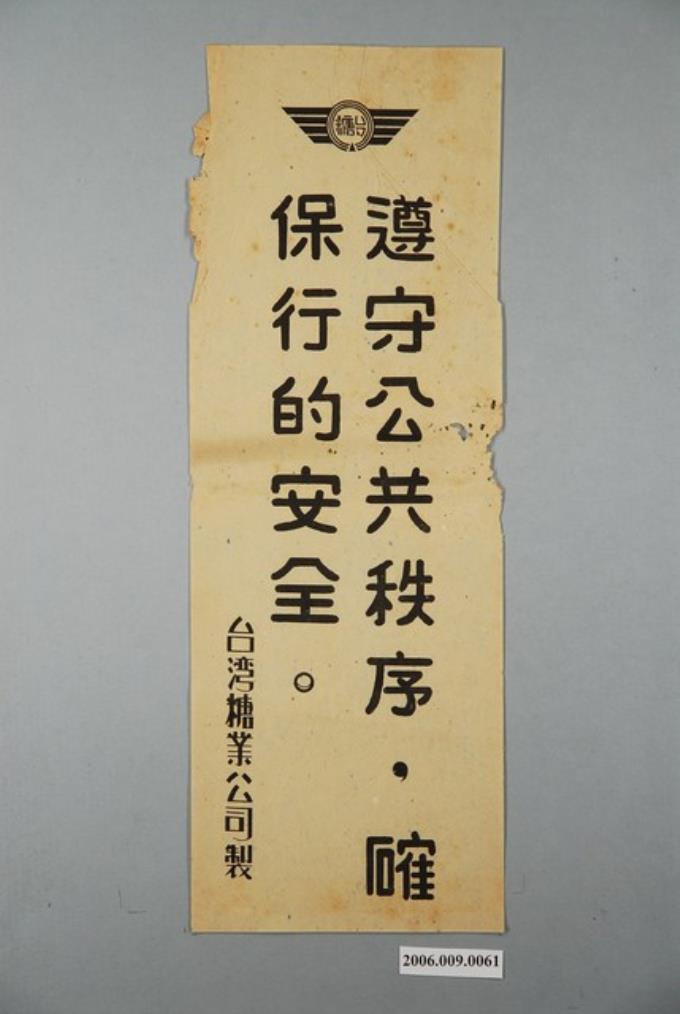 台糖
遵守公共秩序，確
保行的安全。
台湾糖業公司製
2006.009.0061